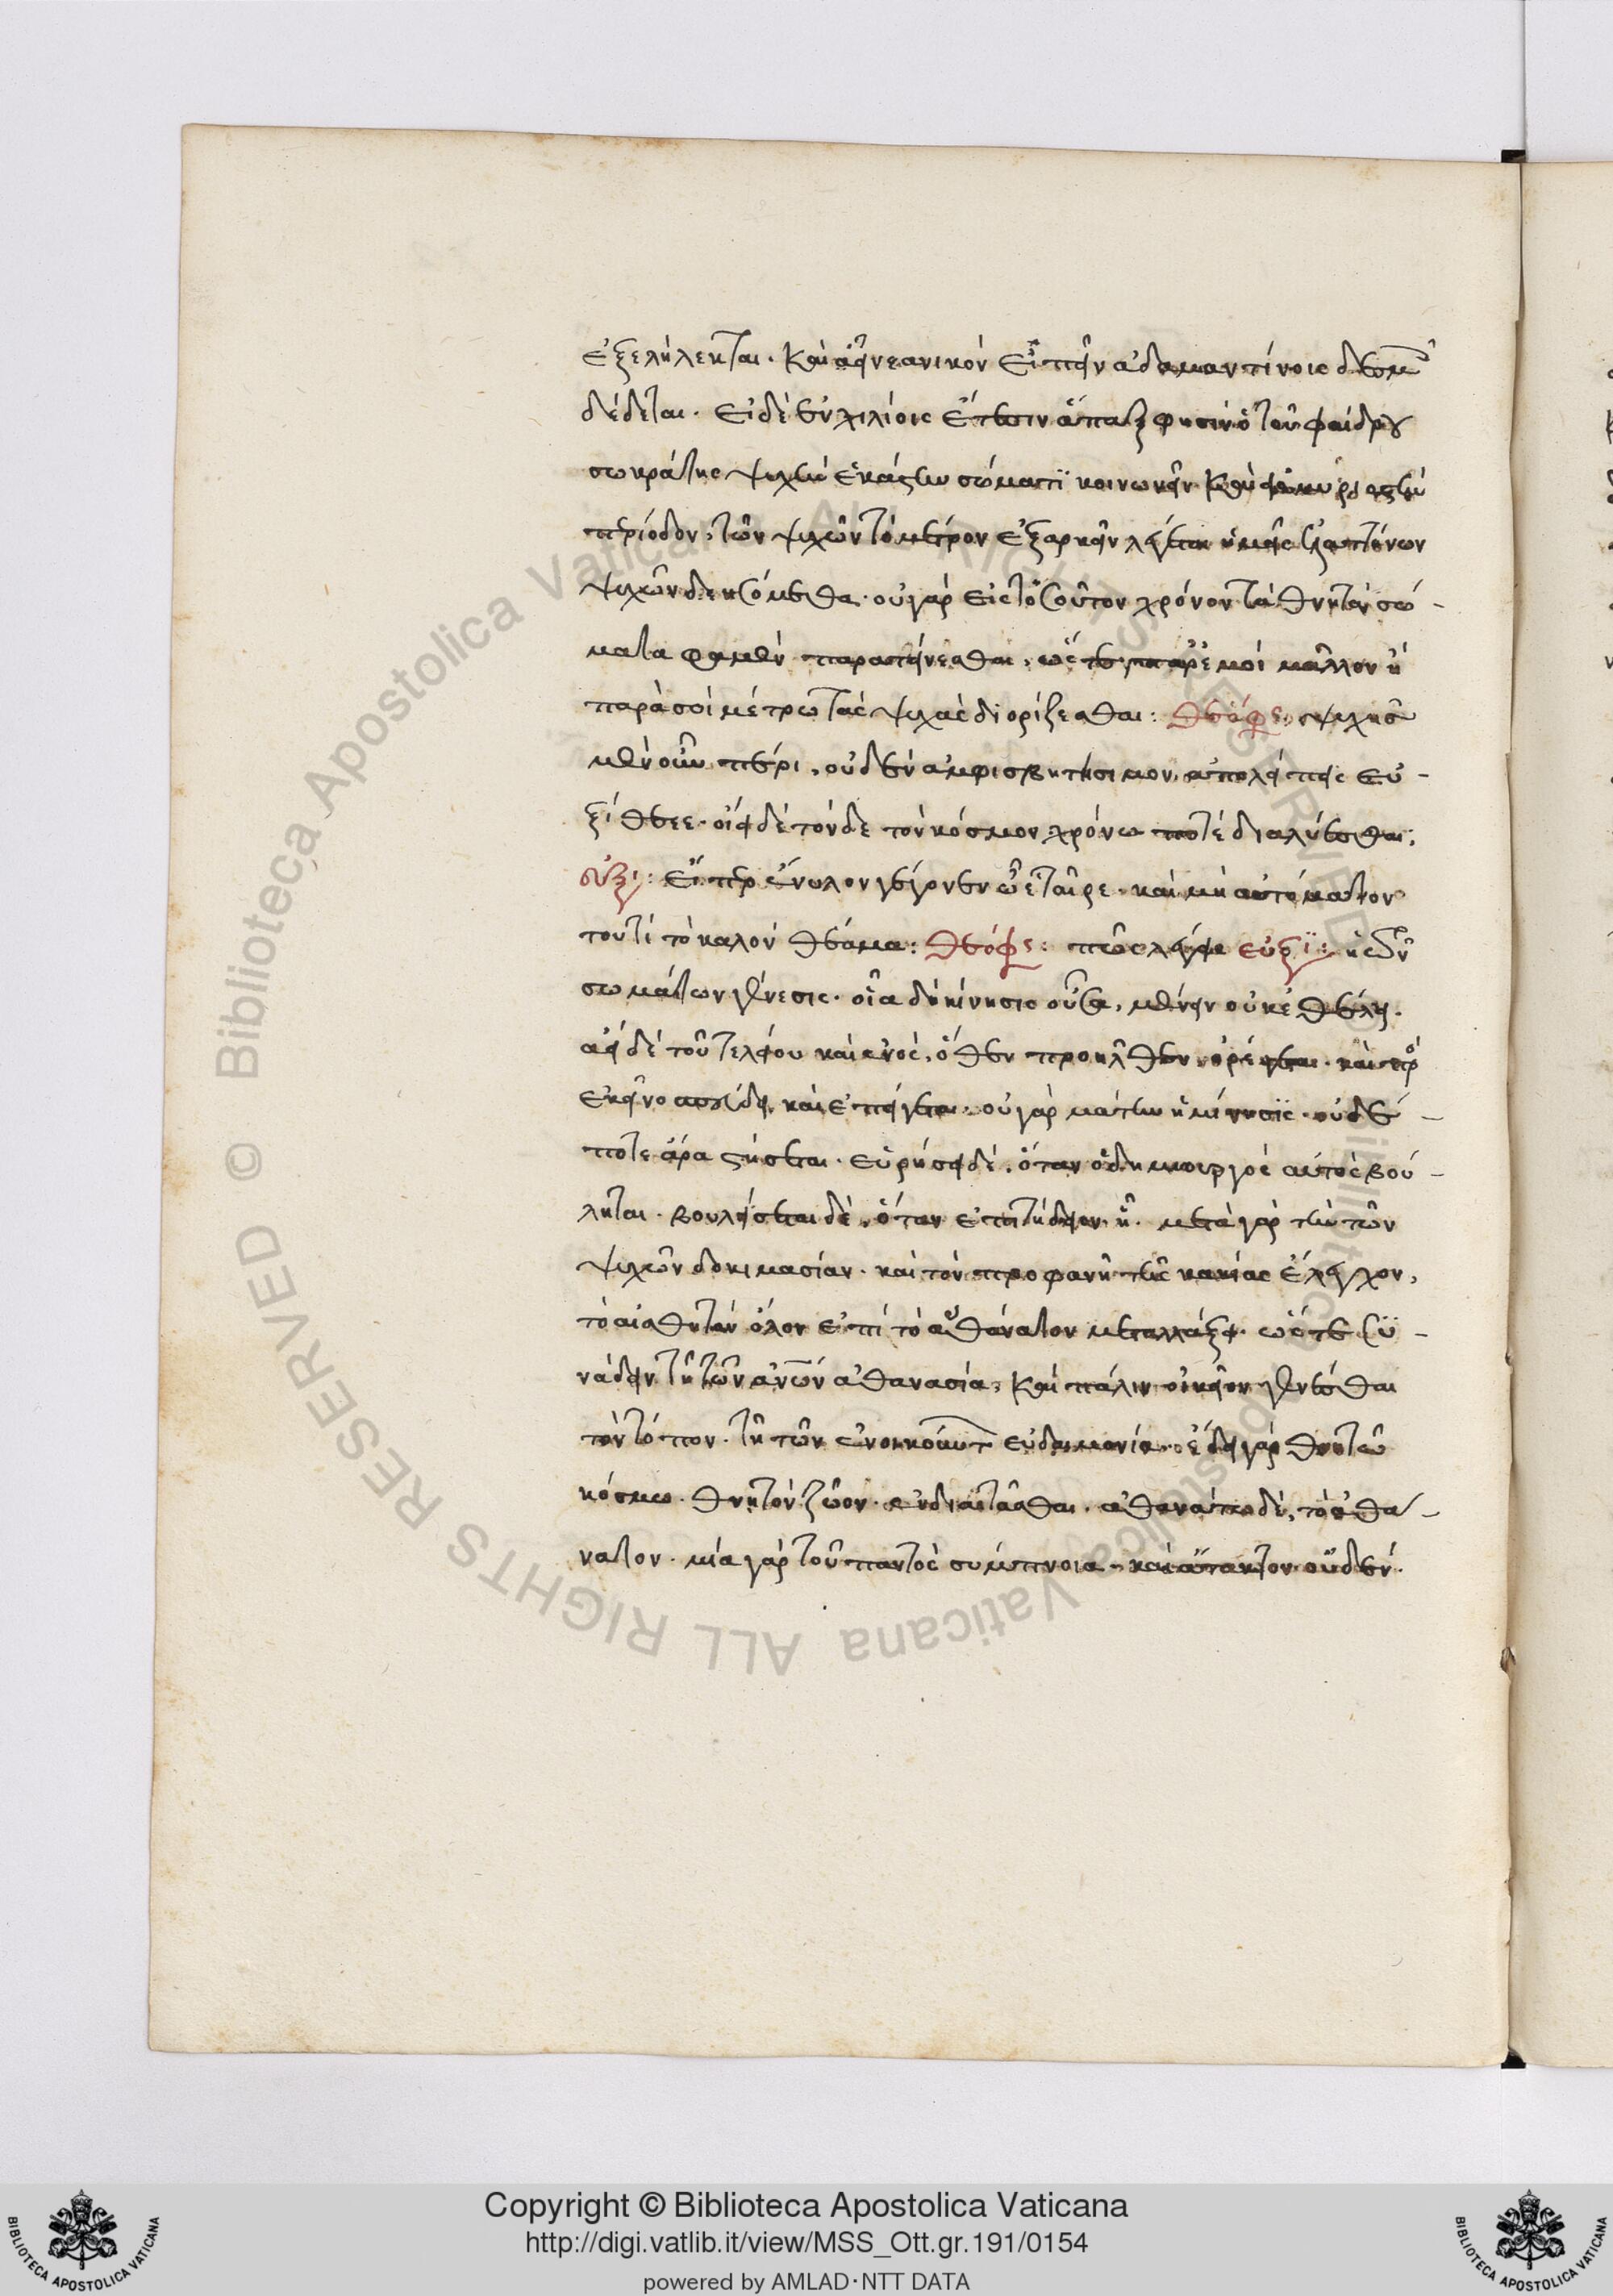 ἐξελήλεκται. καὶ εἰ νεανικὸν εἰπεῖν ἀδαμαντίνοις δεσμοῖς
δέδεται. εἰ δὲ ἐν χιλίοις ἔτεσιν ἅπαξ φησὶν ὁ τοῦ φαίδρου
σωκράτης ψυχὴν ἑκάστην σώματι κοινωνεῖν καὶ
περίοδον, τῶν ψυχῶν τὸ μέτρον ἐξαρκεῖν λέγεται ἡμεῖς ἐλαττόνων
ψυχῶν δεησόμεθα. οὐ γὰρ εἰς τοσοῦτον χρόνον τὰ θνητὰ σώ-
ματα φαμὲν παρατείνεσθαι, ὥστε παρ' ἐμοὶ μᾶλλον ἢ
παρὰ σοὶ μέτρω τὰς ψυχὰς διορίζεσθαι: θεόφρς: ψυχῆς
μὲν οὖν πέρι, οὐδὲν ἀμφισβητήσιμον ἀπολείπεις εὐ-
ξίθεε. οἴει δὲ τόνδε τὸν κόσμον χρόνω ποτὲ διαλύεσθαι;
εὐξι: εἴπερ ἔνυλον γέγονεν ὦ ἑταῖρε. καὶ μὴ αὐτόματον
τουτὶ τὸ καλὸν θέαμα: θεόφρς: πῶς λέγεις εὐξϊ: ἡ τῶν
σωμάτων γένεσις. οἷα δὴ κίνησις οὖσα, μένειν οὐκ ἐθέλει.
ἀεὶ δὲ τοῦ τελείου καὶ ἑνὸς, ὅθεν προῆλθεν, ὀρέγεται. καὶ πρὸς
ἐκεῖνο σπεύδει, καὶ ἐπείγεται. οὐ γὰρ μάτην ἡ κίνησις. οὐδέ-
ποτε ἄρα στήσεται. εὑρήσει δέ, ὅταν ὁ δημιουργὸς αὐτὸς βού-
ληται. βουλήσεται δὲ, ὅταν ἐπιτήδειον ἦ. μετὰ γὰρ τὴν τῶν
ψυχῶν δοκιμασίαν. καὶ τὸν προφανῆ τῆς κακίας ἔλεγχον,
τὸ αἰσθητὸν ὅλον ἐπὶ τὸ ἀθάνατον μεταλλάξει. ὥστε συ-
νάδειν τῆ τῶν ἀνων ἀθανασία, καὶ πάλιν οἰκεῖον γενέσθαι
τὸν τόπον. τῆ τῶν ἐνοικούντων εὐδαιμονία. ἔδει γὰρ θνητῶ
κόσμω. θνητὸν ζῶον. ἐνδιαιτᾶσθαι. ἀθανάτω δὲ, τὸ ἀθά-
νατον. μία γὰρ τοῦ παντὸς σύμπνοια. καὶ ἄτακτον οὐδέν.
Copyright © Biblioteca Apostolica Vaticana
http://digi.vatlib.it/view/MSS_Ott.gr.191/0154
powered by AMLAD·NTT DATA
BIBLIOTECA APOSTOLICA VATICANA
BIBLIOTECA APOSTOLICA VATICANA
© Biblioteca Apostolica Vaticana ALL RIGHTS RESERVED